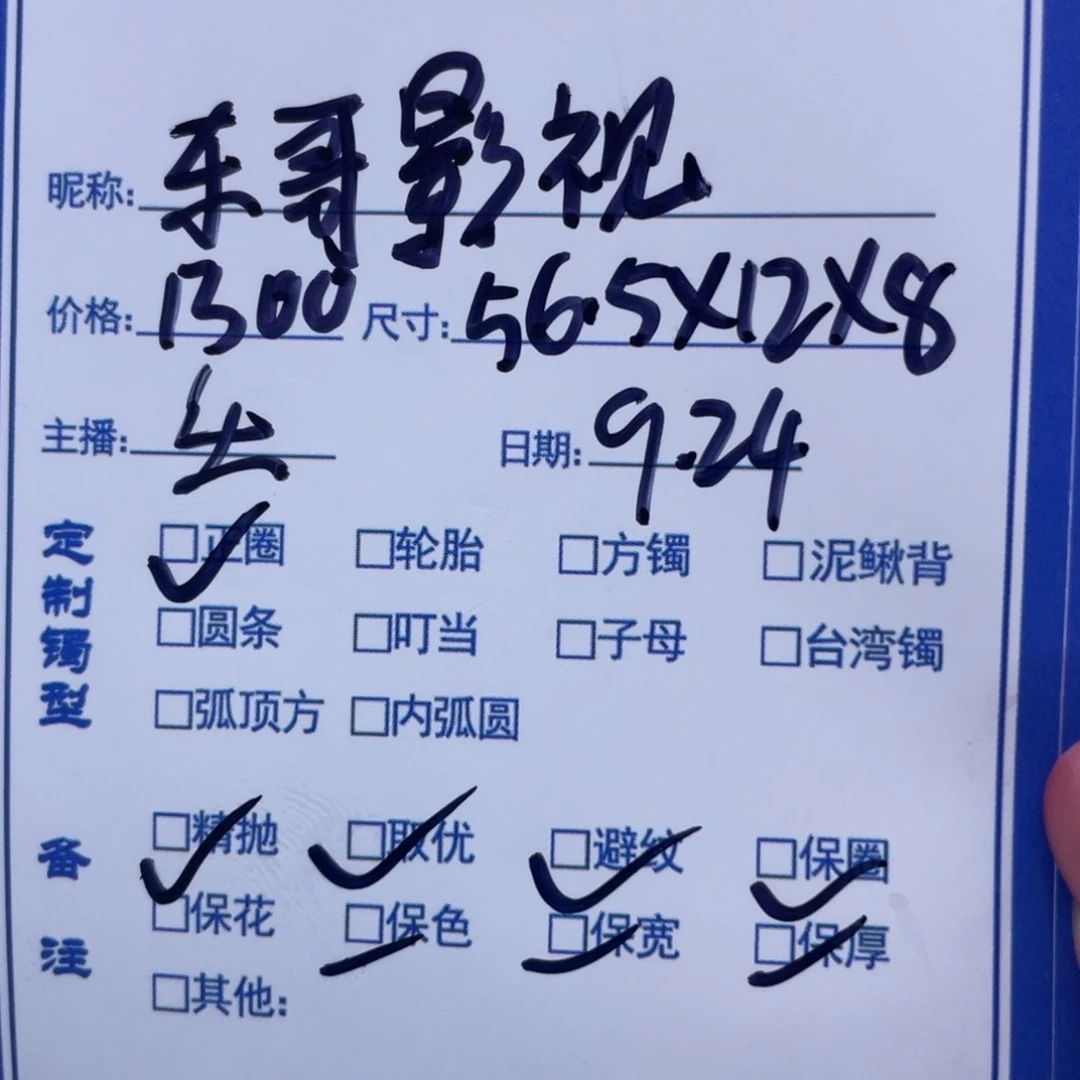 昵称: 东哥影视
价格: 1300 尺寸: 56.5X12X8
主播: 日期: 9.24
定制镯型
□正圈 □轮胎 □方镯 □泥鳅背
□圆条 □叮当 □子母 □台湾镯
□弧顶方 □内弧圆
备注
□精抛 □取优 □避纹 □保圈
□保花 □保色 □保宽 □保厚
□其他: